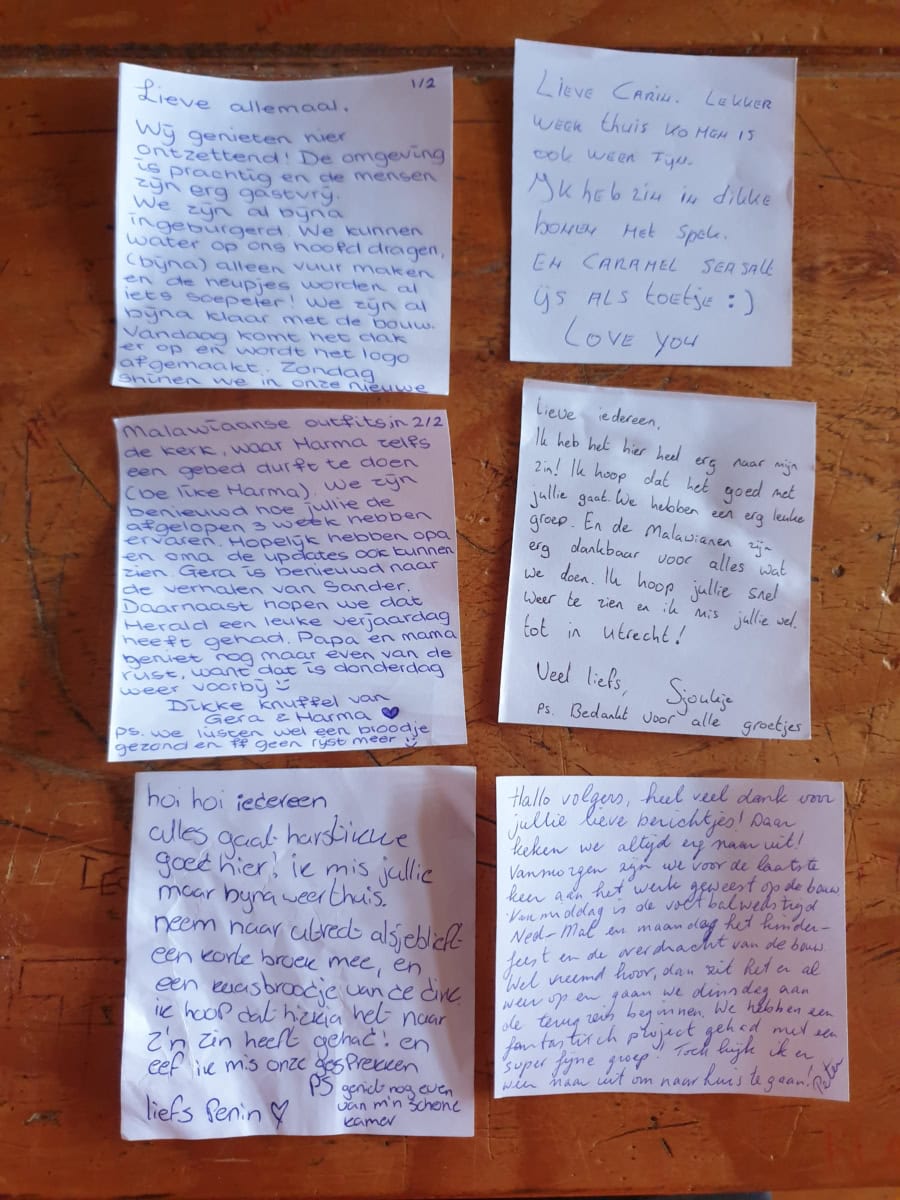 1/2
Lieve allemaal.
Wij genieten hier
ontzettend! De omgeving
is prachtig en de mensen
zijn erg gastvrij.
We zijn al bijna
ingeburgerd. We kunnen
water op ons hoofd dragen,
(bijna) alleen vuur maken
en de heupjes worden al
iets soepeler! We zijn al
bijna klaar met de bouw.
Vandaag komt het dak
er op en wordt het logo
afgemaakt. Zondag
shinen we in onze nieuwe
Malawiaanse outfits in 2/2
de kerk, waar Harma zelfs
een gebed durft te doen
(be like Harma). We zijn
benieuwd hoe jullie de
afgelopen 3 week hebben
ervaren. Hopelijk hebben opa
en oma de updates ook kunnen
zien. Gera is benieuwd naar
de verhalen van Sander.
Daarnaast hopen we dat
Herald een leuke verjaardag
heeft gehad. Papa en mama
geniet nog maar even van de
rust, want dat is donderdag
weer voorbij
Dikke knuffel van
Gera & Harma ♥
ps. we lusten wel een broodje
gezond en ff geen rijst meer
hoi hoi iedereen
alles gaat harstikke
goed hier! ik mis jullie
maar bijna weer thuis.
neem naar utrect alsjeblieft
een korte broek mee, en
een kaasbroodje van de dirk
ik hoop dat hizkia het naar
z'n zin heeft gehad! en
eef ik mis onze gesprekken
PS geniet nog even
van m'n schone
kamer
liefs Penin ♡
Lieve Carin. Lekker
week thuis komen is
ook weer fijn.
Ik heb zin in dikke
bonen met spek.
En caramel seasalt
ijs als toetje :)
Love you
Lieve iedereen,
Ik heb het hier heel erg naar mijn
zin! Ik hoop dat het goed met
jullie gaat. We hebben een erg leuke
groep. En de Malawianen zijn
erg dankbaar voor alles wat
we doen. Ik hoop jullie snel
weer te zien en ik mis jullie wel.
tot in Utrecht!
Veel liefs, Sjoukje
Ps. Bedankt voor alle groetjes
Hallo volgers, heel veel dank voor
jullie lieve berichtjes! Daar
keken we altijd erg naar uit!
Vanmorgen zijn we voor de laatste
keer aan het werk geweest op de bouw
Vanmiddag is de voetbalwedstrijd
Ned-Mal en maandag het kinder-
feest en de overdracht van de bouw.
Wel vreemd hoor, dan zit het er al
weer op en gaan we dinsdag aan
de terugreis beginnen. We hebben een
fantastisch project gehad met een
super fijne groep! Toch kijk ik er
weer naar uit om naar huis te gaan!